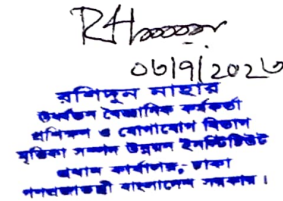 ০৩/9/202৩
রশিদুন নাহার
উর্ধ্বতন বৈজ্ঞানিক কর্মকর্তা
প্রশিক্ষণ ও যোগাযোগ বিভাগ
মৃত্তিকা সম্পদ উন্নয়ন ইনস্টিটিউট
প্রধান কার্যালয়, ঢাকা
গণপ্রজাতন্ত্রী বাংলাদেশ সরকার।